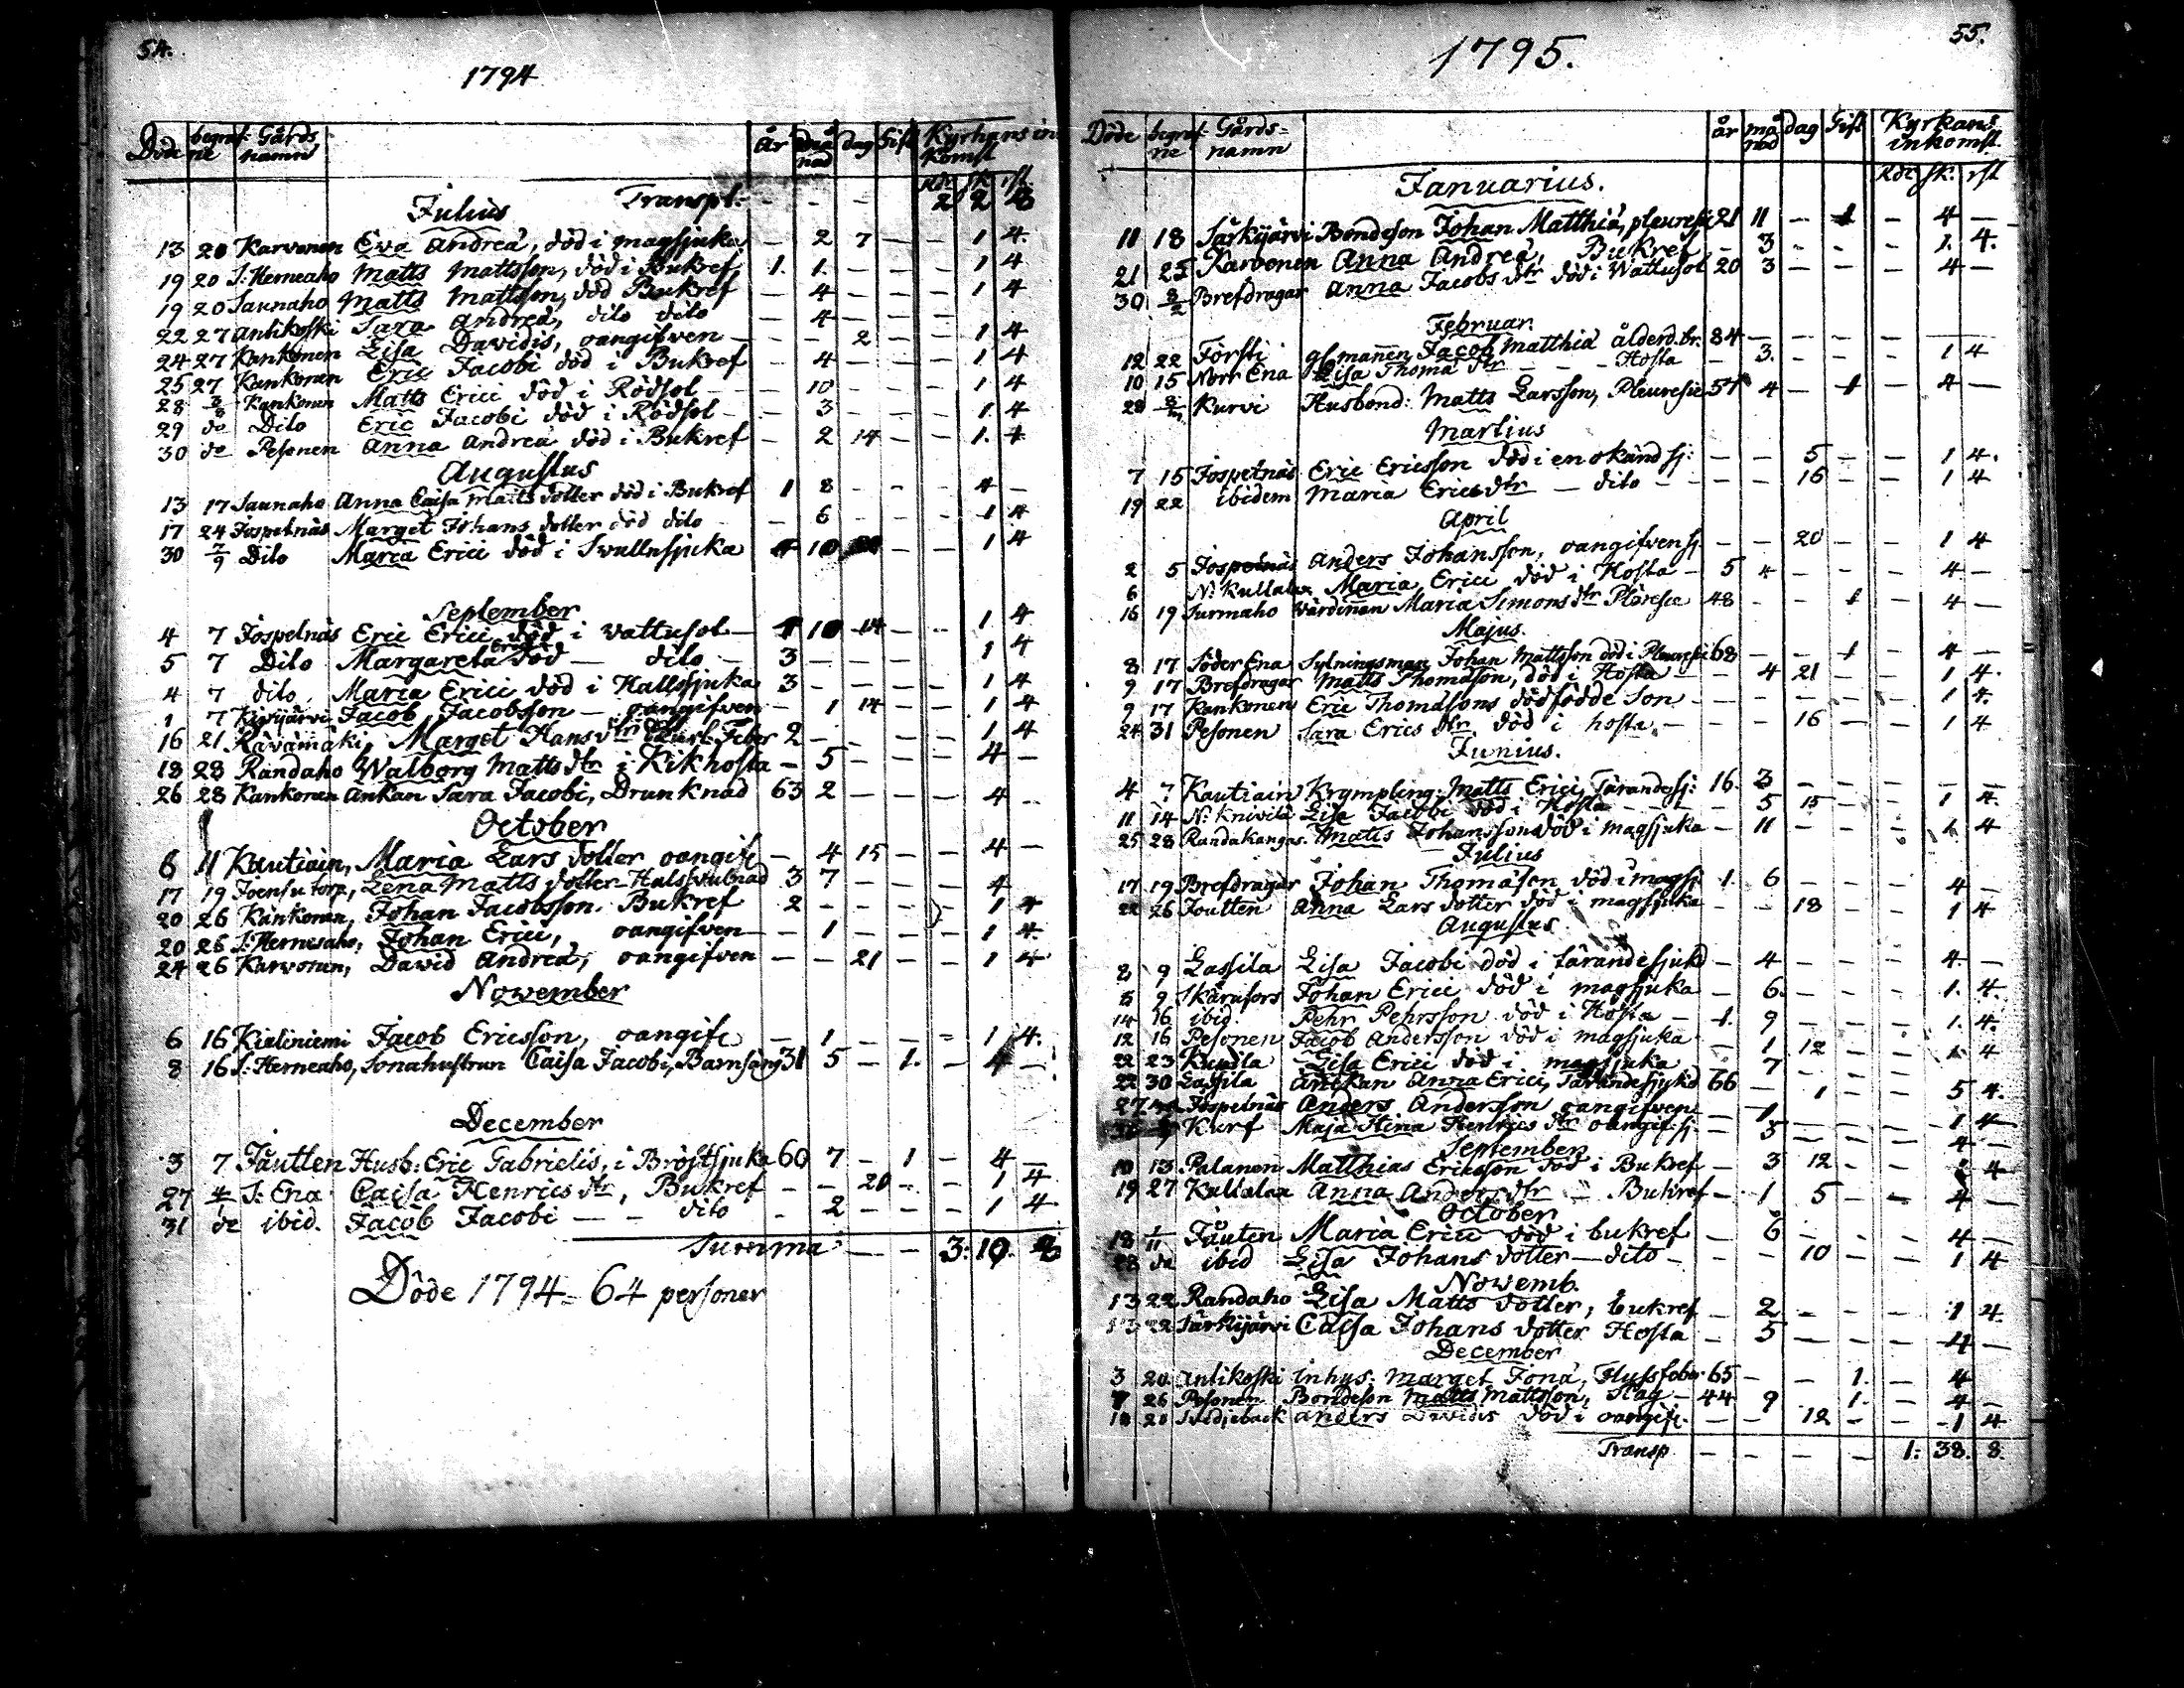 54.
1794
Döde begraf:ne Gårds namn År månad dag Gift Kyrkans in komst
Rdr sk. rst.
Julius Transpl: - - - 2 2 8
13 20 Karvonen Eva Andreá, död i magsjuka - 2 7 - - 1 4.
19 20 S: Herneaho Matts Mattsson, död i Bukref 1. 1. - - - 1 4
19 20 Saunaho Matts Mattsson, död Bukref - 4 - - - 1 4
22 27 Antikoski Sara Andreá, dito dito - 4 - - -
24 27 Kankonen Lisa Davidis, oangifven - - - 2 - - 1 4
25 27 Kankonen Eric Jacobi död i Bukref - 4 - - - 1 4
28 2/8 Kankonen Matts Erici död i Rödsol - 10 - - - 1 4
29 do Dito Eric Jacobi död i Rödsol - - 3 - - - 1. 4
30 do Pesonen Anna Andreá död i Bukref - 2 14 - - 1. 4
Augustus
13 17 Saunaho Anna Caisa Matts dotter död i Bukref 1 8 - - - 4 -
17 24 Jospetnäs Marget Johans dotter död dito - - 6 - - - 1 4
30 7/9 Dito Maria Erici död i Svullnsjuka 10 - - 1 4
September
4 7 Jospetnäs Eric Erici död i Vattusot - 1 10 14 - - 1 4
5 7 Dito Margareta Erici död - dito - 3 - - - - 1 4
4 7 dito Maria Erici död i Hallssjuka 3 - - - - 1 4
1 7 Kivijärvi Jacob Jacobsson - oangifven - 1 14 - - 1 4
16 21 Rävämäki, Marget Hans dtr Feber 2 - - - - 1 4
18 28 Randaho Walborg Matts dtr i Kikhosta - 5 - - - 4 -
26 28 Kankonen änkan Sara Jacobi, Drunknad 63 2 - - - 4 -
October
6 11 Kautiain, Maria Lars dotter oangif: - 4 15 - - 4 -
17 19 Joensu torp, Lena Matts dotter Halssvulnad 3 7 - - - 4
20 26 Kankonen, Johan Jacobsson. Bukref 2 - - - - 1 4
20 26 S: Herneaho, Johan Erici, oangifven - 1 - - - 1 4.
24 26 Karvonen, David Andreá, oangifven - - 21 - - 1 4
November
6 16 Kieliniemi Jacob Ericsson, oangif: - 1 - - - 1 4.
8 16 S: Herneaho, Sonahustrun Caisa Jacobi, Barnsäng 31 5 - 1. - 4 -
December
3 7 Jåutten Husb: Eric Gabrielis, i Bröstsjuka 60 7 - 1 - 4 -
27 4/1 S: Ena Caisa Henrics dtr, Bukref - - 20 - - 1 4
31 do ibid. Jacob Jacobi - - dito - 2 - - - 1 4
Summa - - 3: 10. 8
Döde 1794 = 64 personer
55.
1795.
Döde begraf:ne Gårds=namn år månad dag Gift Kyrkans inkomst.
Rdr sk. rst
Januarius.
11 18 Särkijärvi Bondeson Johan Matthiá, pleuresi 21 11 - 1 - 4 -
21 25 Karvonen Anna Andreá, Bukref - 3 - - - 1. 4.
30 8/2 Brefdragar Anna Jacobs dtr död i Wattusot 20 3 - - - 4 -
Februar.
12 22 Försti glmannen Jacob Matthiá ålderd.br. 84 - - - - - -
10 15 Norr Ena Lisa Thomá dtr - - - Hosta - 3. - - - 1 4
28 8/3 Kurvi Husbond: Matts Larsson, Pleuresie 57 4 - 1 - 4 -
Martius
7 15 Jospetnäs Eric Ericsson död i en okänd sj: - - 5 - - 1 4.
19 22 ibidem Maria Erics dtr - dito - - - 16 - - 1 4
April
2 5 Jospetnäs Anders Johansson, oangifven sj. - - 20 - - 1 4
6 N: Kullalax Maria Erici död i Hosta - 5 4 - - - 4 -
16 19 Surmaho Värdinnan Maria Simons dtr Pläresie 48 - - 1 - 4 -
Majus.
8 17 Söder Ena Sytningsman Johan Mattsson död i Pleuresie 68 - - 1 - 4 -
9 17 Brefdragar Matts Thomason, död i Hosta - - 4 21 - - 1 4.
9 17 Kankonen Eric Thomasons dödfödde Son - - - - - - 1 4.
24 31 Pesonen Sara Erics dtr död i hosta - - - 16 - - 1 4
Junius.
4 7 Kautiain Krympling: Matts Erici, Tärandesj: 16. 3 - - - - -
11 14 N: Knivilä Lisa Jacobi död i Hosta - - 5 15 - - 1 4.
25 28 Randakangas. Matts Johansson död i magsjuka - 11 - - - 1 4
Julius
17 19 Brefdragar Johan Thomason död i magsj 1. 6 - - - 4 -
22 26 Joutten Anna Lars dotter död i magsjuka - - 18 - - 1 4
Augustus
8 9 Lassila Lisa Jacobi död i tärandesjukd - 4 - - - 4. -
8 9 Skärufors Johan Erici död i magsjuka - 6. - - - 1. 4.
14 16 ibid. Pehr Pehrsson död i Hosta - 1. 9 - - - 1. 4.
12 16 Pesonen Jacob Andersson död i magsjuka - 1 12 - - 1 4
22 23 Lisa Erici död i magsjuka - 7 - - -
22 30 Lassila änckan Anna Erici, Tärandesjukd 66 - - - - 5 4.
27 Jospetnäs Anders Andersson oangifven - - 1 - - 1 4
Kurf Maja Stina Henrics dtr oangif. sj. - 5 - - - 4 -
September
10 13 Palanen Matthias Ericsson död i Bukref - 3 12 - - 4
19 27 Kullalax Anna Anders dtr - Bukref - 1 5 - - 4 -
October
18 1/11 Jåuten Maria Erici död i bukref - 6 - - - 4 -
28 do ibid Lisa Johans dotter - dito - - - 10 - - 1 4
Novemb.
13 22 Randaho Lisa Matts dotter, bukref - 2 - - - 1 4.
13 22 Särkijärvi Caisa Johans dotter Hosta - 5 - - - 4 -
December
3 20. Antikoski inhys: Marget Joná, Flussfeber 65 - - 1. - 4
7 26 Pesonen Bondeson Matts Mattsson, Slag - 44 9 - 1. - 4 -
18 20 Svedjeback Anders Davidis död i oangif: - - 12 - - 1 4
Transp - - - - 1: 38. 8.